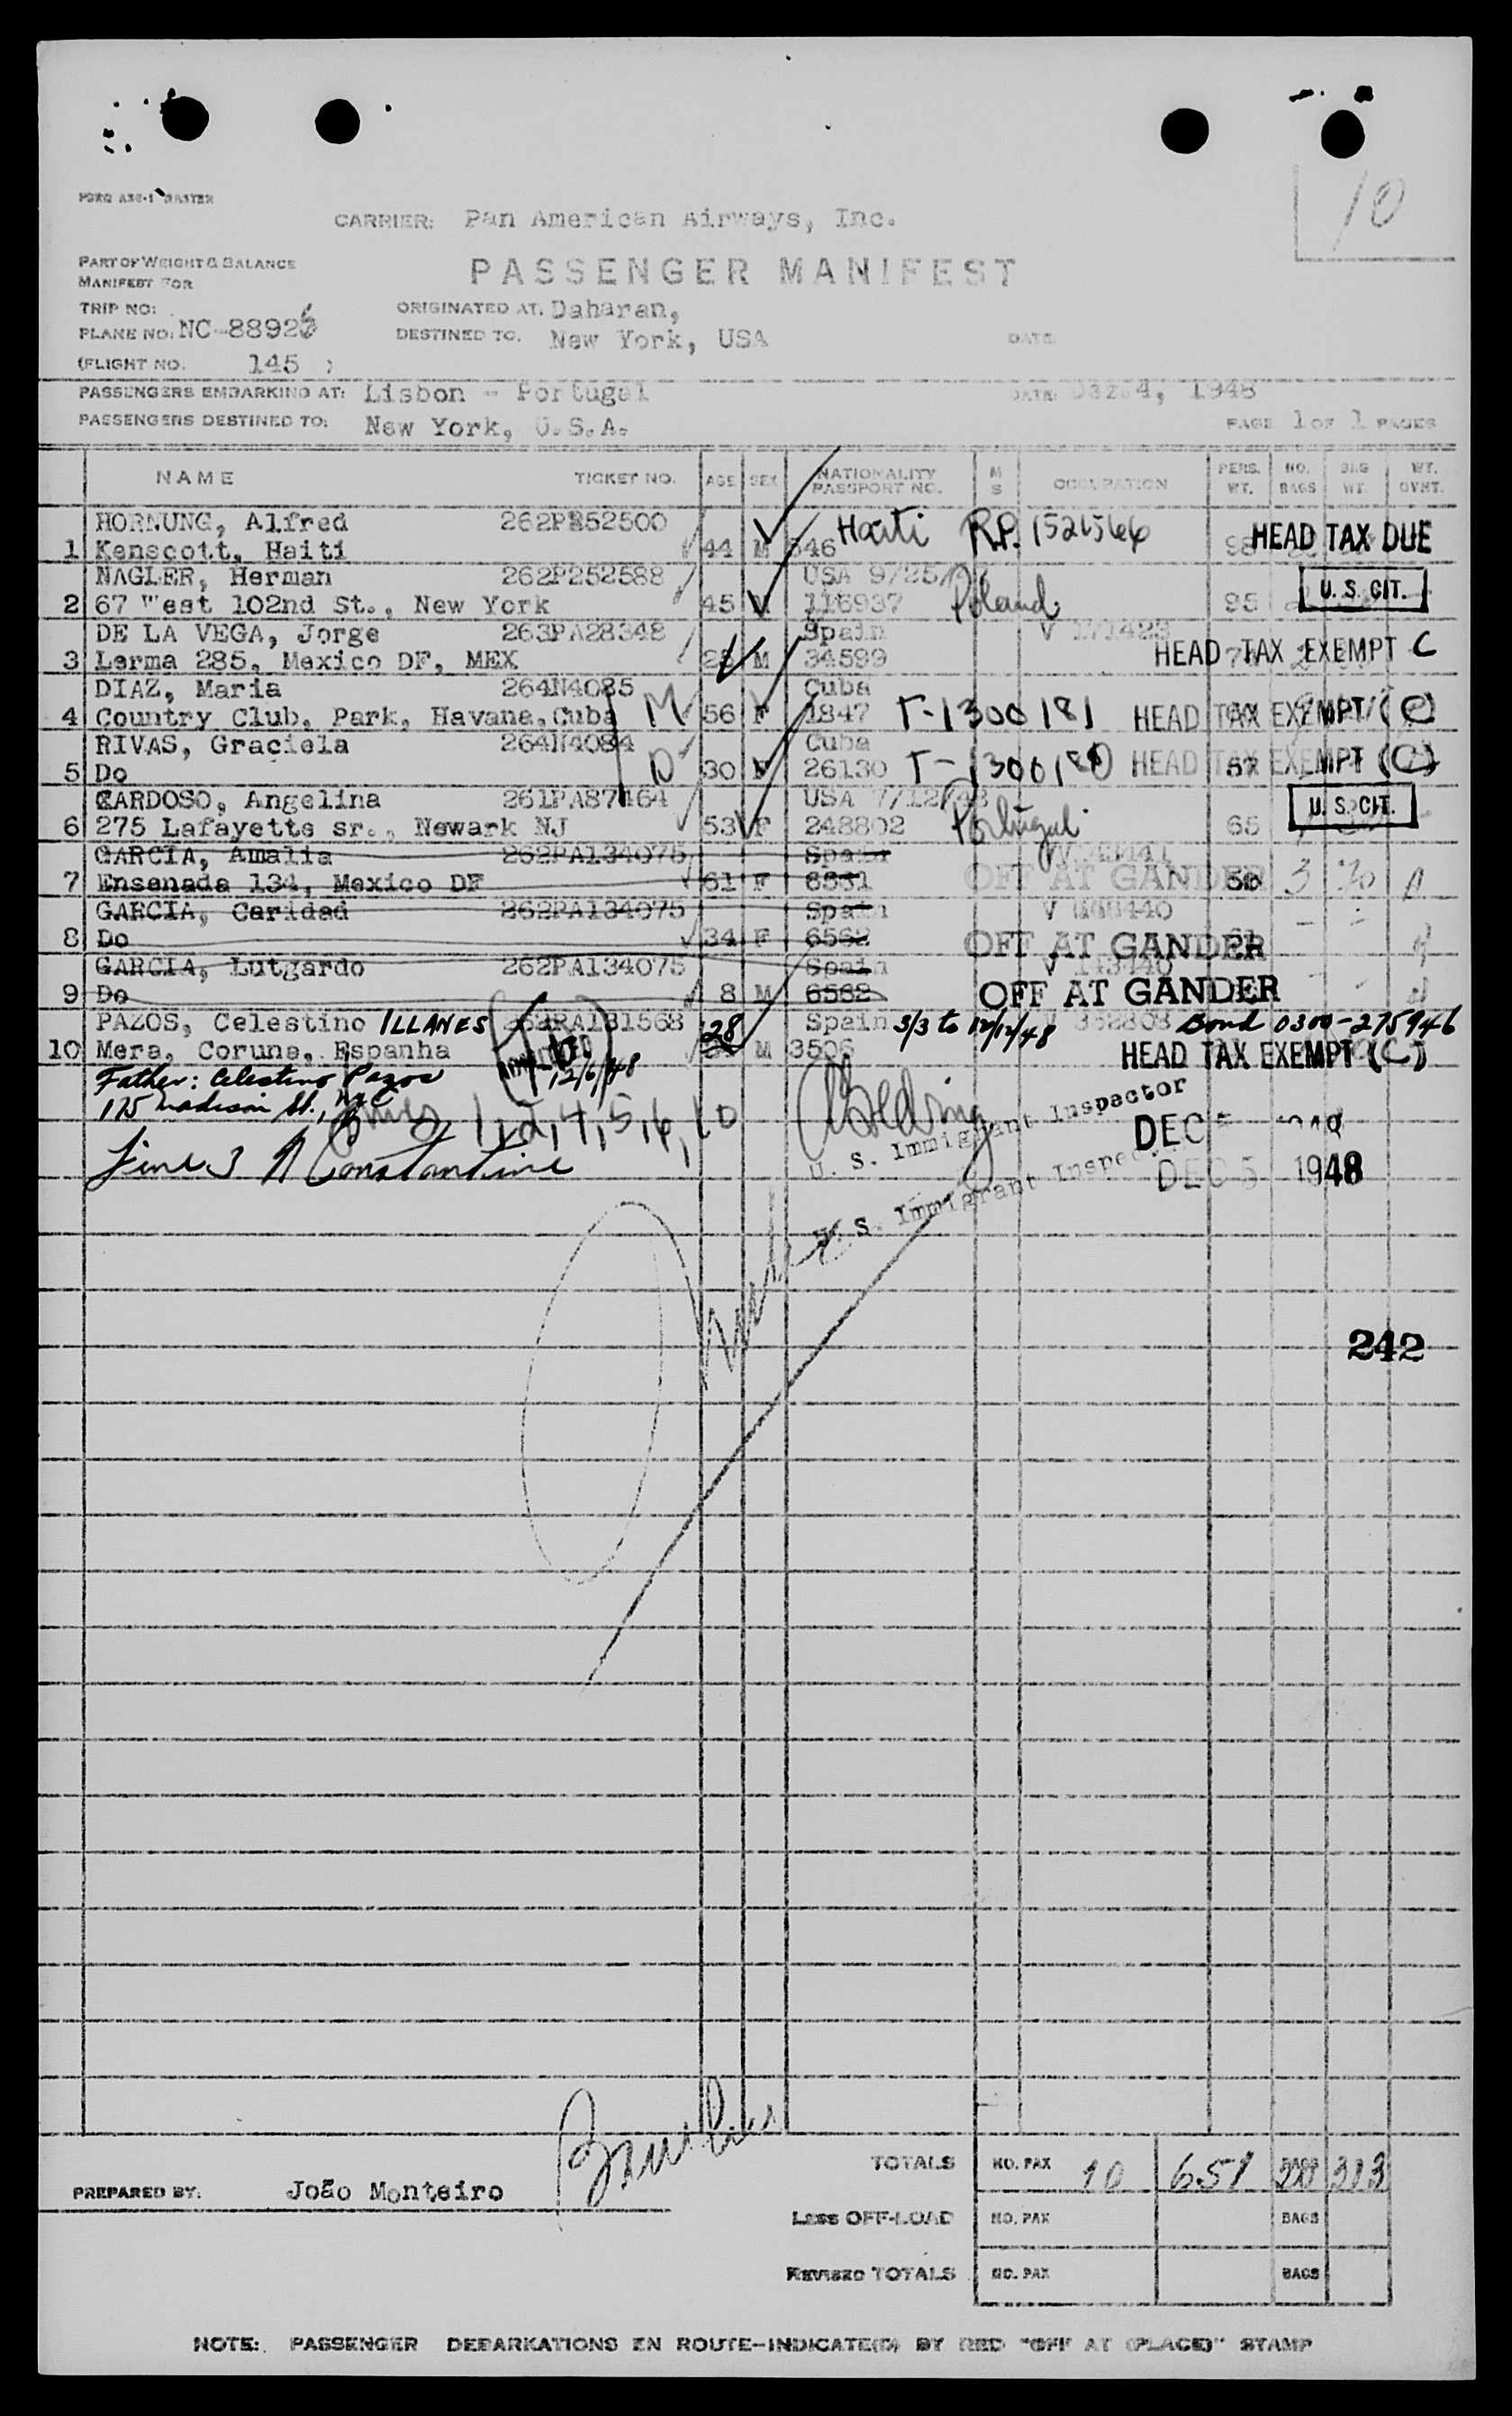 10
CARRIER: Pan American Airways, Inc.
PART OF WEIGHT & BALANCE
MANIFEST FOR
PASSENGER MANIFEST
TRIP NO:
ORIGINATED AT. Daharan,
PLANE NO: NC-88926
DESTINED TO. New York, USA
DATE
(FLIGHT NO. 145 )
PASSENGERS EMBARKING AT: Lisbon - Portugal
DATE: 4, 1948
PASSENGERS DESTINED TO: New York, U.S.A.
PAGE 1 OF 1 PAGES
NAME TICKET NO. AGE SEX NATIONALITY PASSPORT NO. M S OCCUPATION PERS. WT. NO. BAGS BAG WT. WT. OVHT.
HORNUNG, Alfred 262P252500 Haiti R.P. 1521566 HEAD TAX DUE
1 Kenscott, Haiti 44 M 546
NAGLER, Herman 262P252588 USA 9/25/ Poland U. S. CIT.
2 67 West 102nd St., New York 45 M 116937 95
DE LA VEGA, Jorge 263PA28348 Spain V 171423
3 Lerma 285, Mexico DF, MEX M 34599 HEAD TAX EXEMPT C
DIAZ, Maria 264N4085 M Cuba
4 Country Club, Park, Havana, Cuba 56 F 1847 T-1300181 HEAD TAX EXEMPT (C)
RIVAS, Graciela 264N4084 Cuba
5 Do 30 F 26130 T-1300180 HEAD TAX EXEMPT (C)
CARDOSO, Angelina 261PA87464 USA 7/12/48 Portugal U. S. CIT.
6 275 Lafayette sr., Newark NJ 53 F 248802 65
GARCIA, Amalia 262PA134075 Spain
7 Ensenada 134, Mexico DF 61 F OFF AT GANDER 3 30
GARCIA, Caridad 262PA134075 Spain
8 Do 34 F 6562 OFF AT GANDER
GARCIA, Lutgardo 262PA134075 Spain
9 Do 8 M 6562 OFF AT GANDER
PAZOS, Celestino ILLANES 28 Spain 3/3 to 12/12/48 Bond 0300-275946
10 Mera, Coruna, Espanha M 3506 HEAD TAX EXEMPT (C)
ADMITTED 12/6/48
Father: Celestino Pazos
175 Madison St., NYC
Lines 1, 2, 4, 5, 6, 10
U. S. Immigrant Inspector DEC 5 1948
Line 3 N Constantine
U. S. Immigrant Inspector DEC 5 1948
242
PREPARED BY: João Monteiro
TOTALS NO. PAX 10 651 313
Less OFF-LOAD NO. PAX BAGS
Revised TOTALS NO. PAX BAGS
NOTE: PASSENGER DEBARKATIONS EN ROUTE-INDICATE(D) BY RED "OFF AT (PLACE)" STAMP